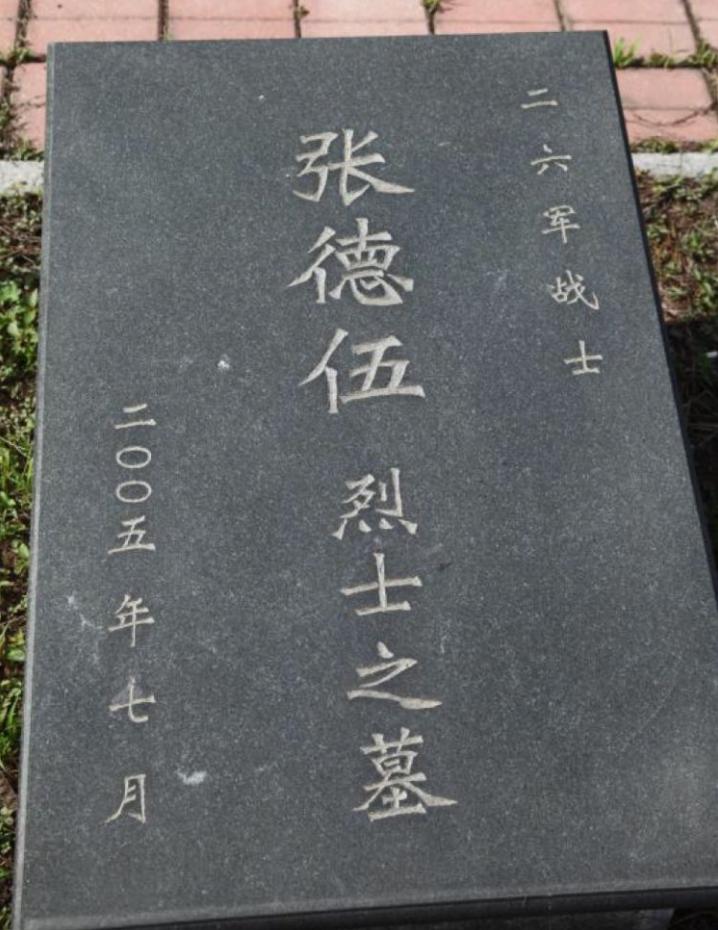 二六军战士
张德伍 烈士之墓
二〇〇五年七月